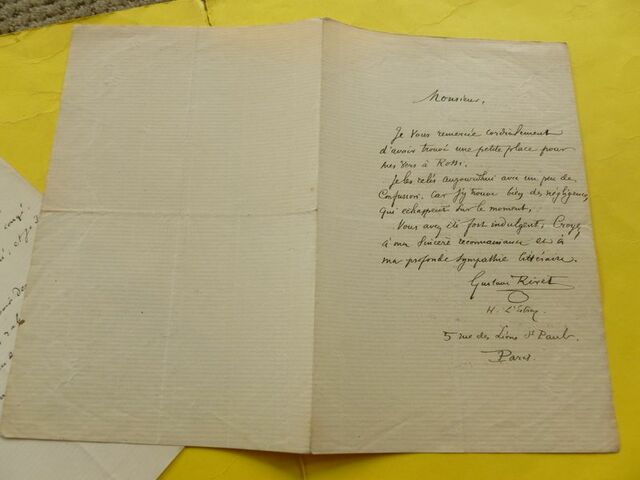 Monsieur,
Je vous remercie cordialement
d'avoir trouvé une petite place pour
mes vers à Rossi.
Je les relis aujourd'hui avec un peu de
Confusion. Car j'y trouve bien des négligences
qui échappent sur le moment.
Vous avez été fort indulgent. Croyez
à ma sincère reconnaissance et à
ma profonde sympathie littéraire.
Gustave Rivet
5 rue des Lions St Paul.
Paris.